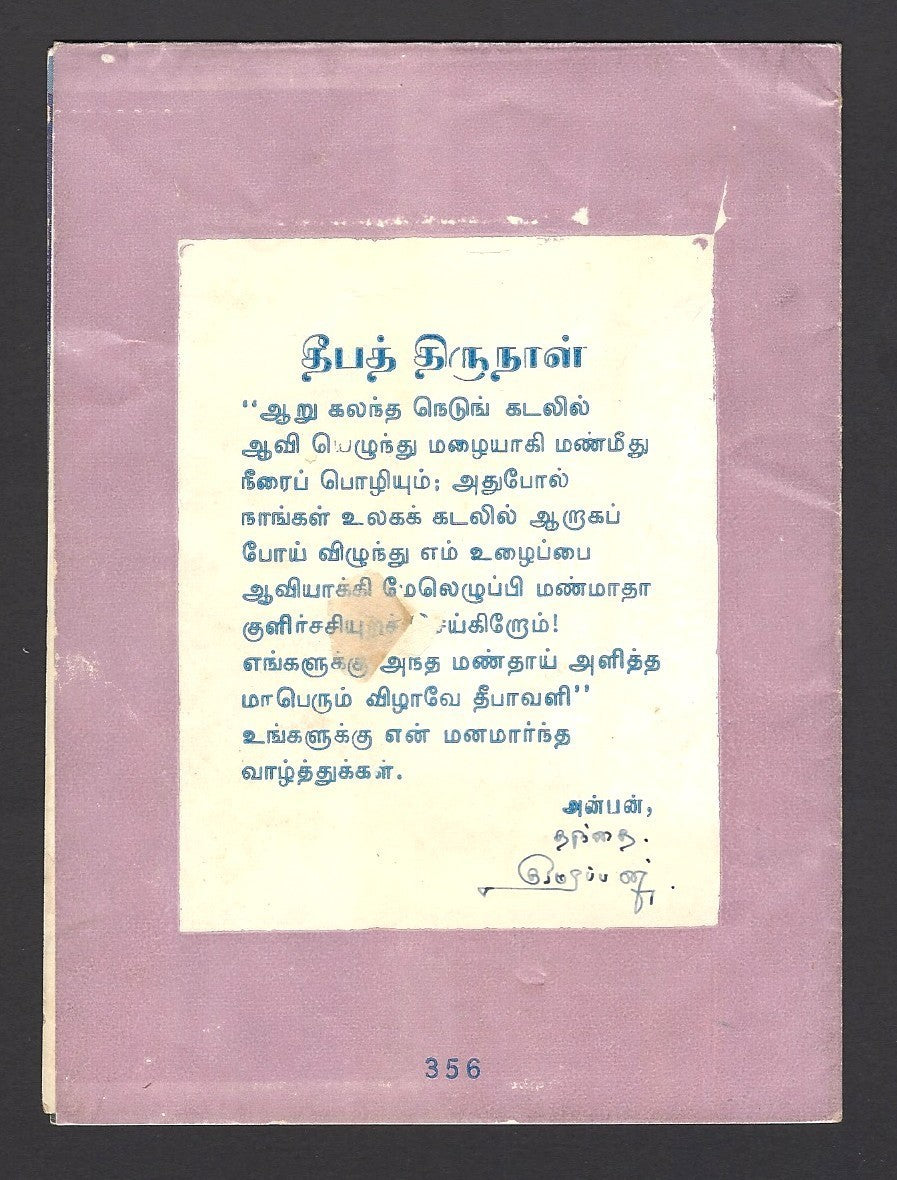 தீபத் திருநாள்
“ஆறு கலந்த நெடுங் கடலில்
ஆவி யெழுந்து மழையாகி மண்மீது
நீரைப் பொழியும்; அதுபோல்
நாங்கள் உலகக் கடலில் ஆறாகப்
போய் விழுந்து எம் உழைப்பை
ஆவியாக்கி மேலெழுப்பி மண்மாதா
குளிர்சசியுறச் செய்கிறோம்!
எங்களுக்கு அநத மண்தாய் அளித்த
மாபெரும் விழாவே தீபாவளி”
உங்களுக்கு என் மனமார்ந்த
வாழ்த்துக்கள்.
அன்பன்,
தந்தை.
356